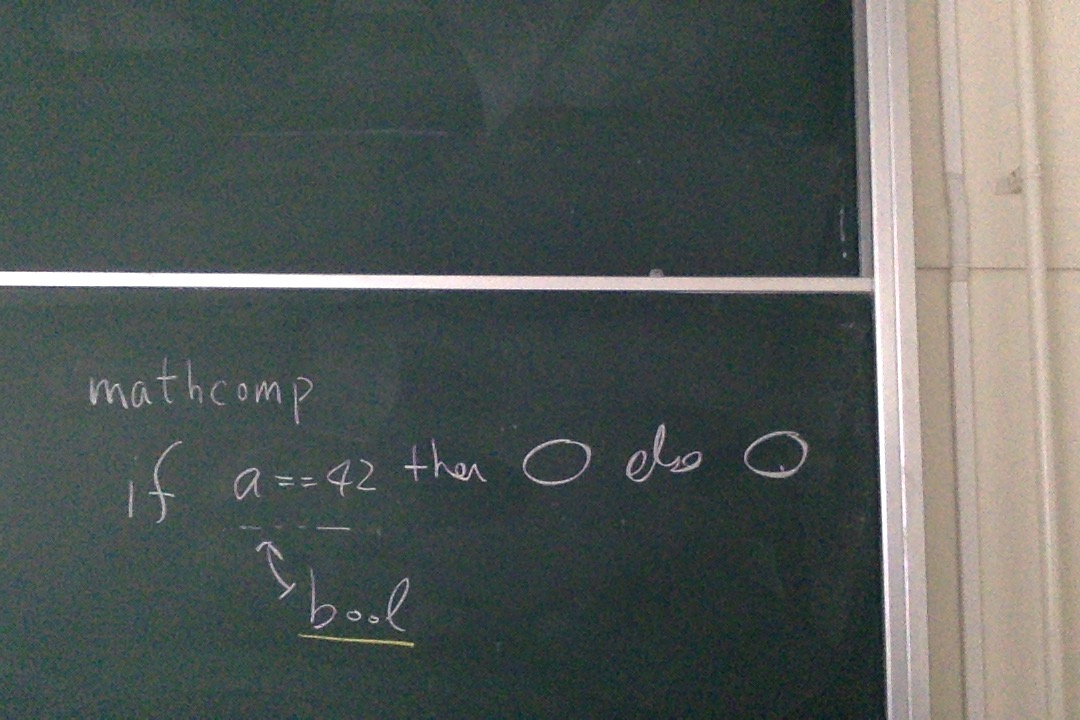 mathcomp
if a == 42 then ◯ else ◯
bool